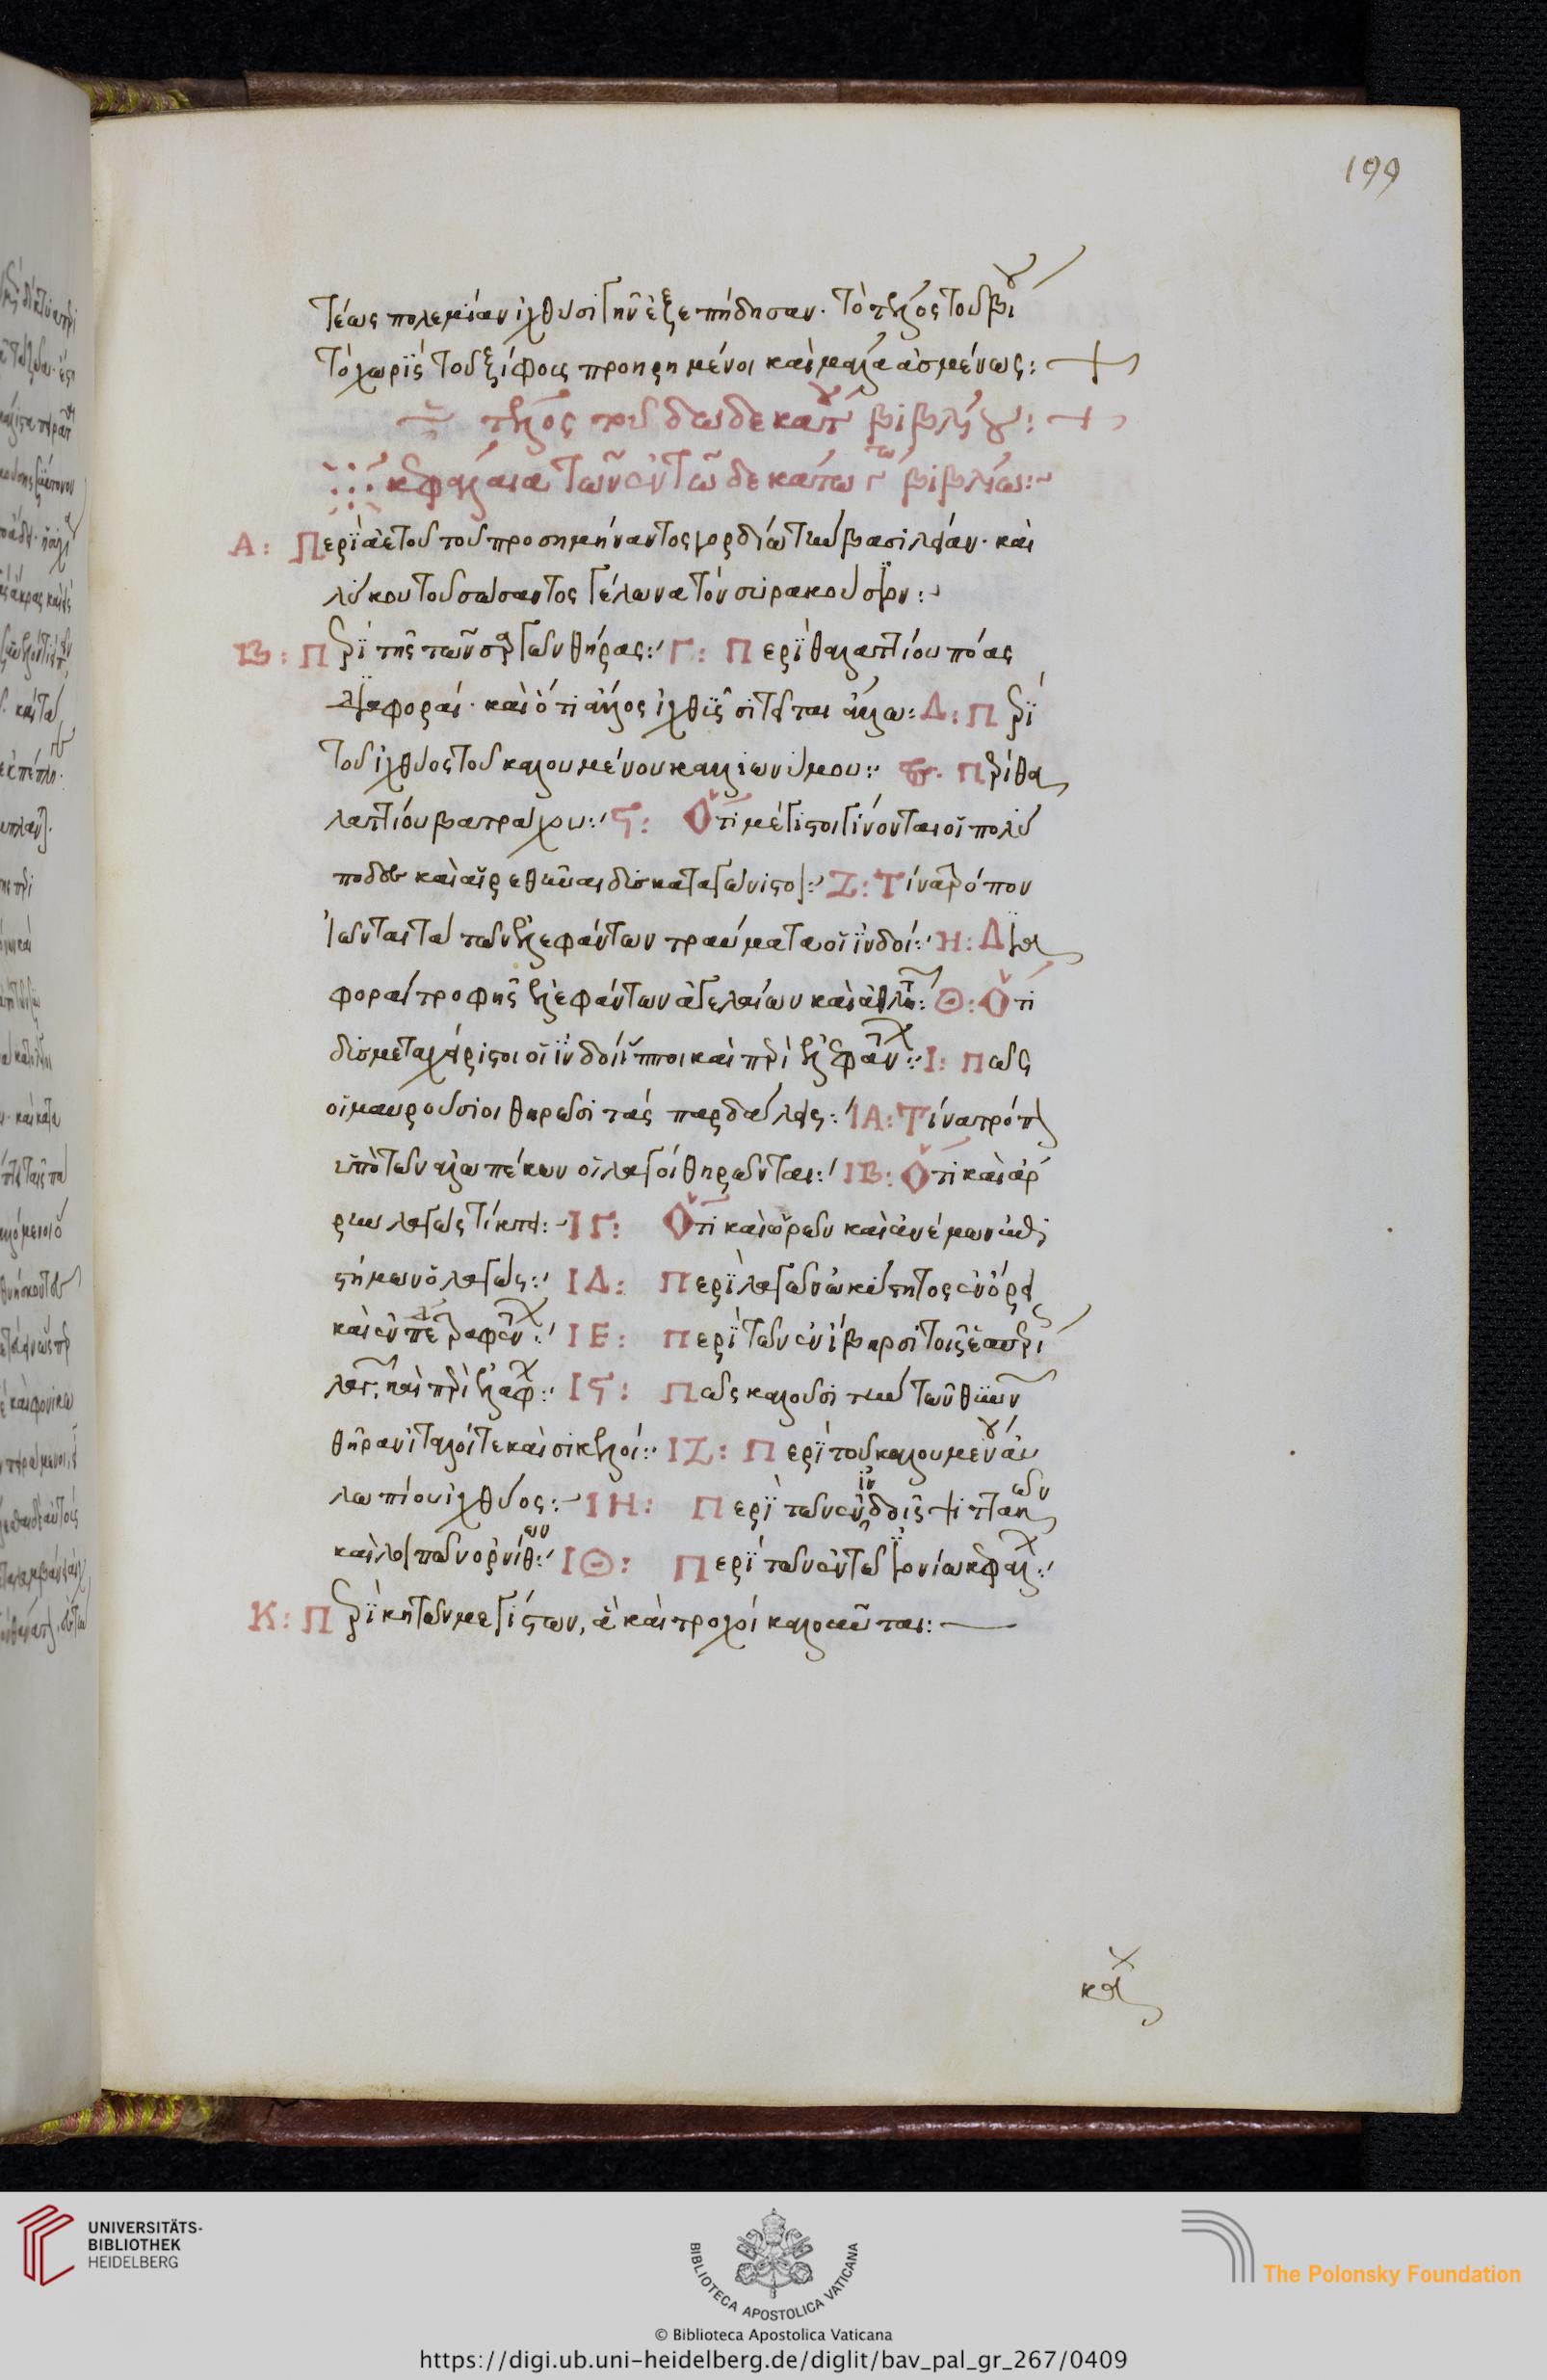 199
τέως πολεμίαν ἰχθύσι γῆν ἐξεπήδησαν. τὸ τέλος τοῦ βίου
τὸ χωρὶς τοῦ ξίφους προῃρημένοι καὶ μάλα ἀσμένως:
τέλος τοῦ δωδεκάτου βιβλίου:
κεφάλαια τῶν ἐν τῶ δεκάτω γ τω βιβλίω:
Α: Περὶ ἀετοῦ τοῦ προσημήναντος γορδίω τὴν βασιλείαν. καὶ
λύκου τοῦ σώσαντος γέλωνα τὸν συρακούσιον:
Β: Περὶ τῆς τῶν σαργῶν θήρας: Γ: Περὶ θαλαττίου πόας
διαφοραί. καὶ ὅτι ἄλλος ἰχθὺς σιτεῖται ἄλλω: Δ: Περὶ
τοῦ ἰχθύος τοῦ καλουμένου καλλιωνύμου: Ε. Περὶ θα
λαττίου βατράχου: ϛ: Ὅτι μέγιστοι γίνονται οἱ πολύ
ποδες καὶ αἱρεθῆναι δυσκαταγώνιστοι: Ζ: Τίνα τρόπον
ἰῶνται τὰ τῶν ἐλεφάντων τραύματα οἱ ἰνδοί: Η: Δια
φοραὶ τροφῆς ἐλεφάντων ἀγελαίων καὶ ἀθλητ: Θ: Ὅτι
δυσμεταχείριστοι οἱ ἰνδοὶ ἵπποι καὶ περὶ ἐλεφάν: Ι: Πῶς
οἱ μαυρούσιοι θηρῶσι τὰς παρδάλεις: ΙΑ: Τίνα τρόπον
ὑπὸ τῶν ἀλωπέκων οἱ λαγοὶ θηρῶνται: ΙΒ: Ὅτι καὶ ἄρ
ρην λαγὼς τίκτει: ΙΓ: Ὅτι καὶ ὡρῶν καὶ ἀνέμων ἐπι
στήμων ὁ λαγώς: ΙΔ: Περὶ λαγῶν ὠκύτητος ἐν ὄρει
ΙΕ: Περὶ τῶν ἐν ἴβηρσι τοῖς ἑσπερί
ΙϚ: Πῶς καλοῦσι τὴν τῶν θύννων
θήραν ἰταλοί τε καὶ σικελοί: ΙΖ: Περὶ τοῦ καλουμένου αὐ
λωπίου ἰχθύος: ΙΗ: Περὶ τῶν ἐν ἰνδοῖς ψιττακῶν
καὶ λοιπῶν ὀρνίθων: ΙΘ: Περὶ τῶν ἐν τῶ ἰονίω κεφάλ:
Κ: Περὶ κητῶν μεγίστων, ἃ καὶ τροχοὶ καλοῦνται:
UNIVERSITÄTS-
BIBLIOTHEK
HEIDELBERG
BIBLIOTECA APOSTOLICA VATICANA
The Polonsky Foundation
© Biblioteca Apostolica Vaticana
https://digi.ub.uni-heidelberg.de/diglit/bav_pal_gr_267/0409